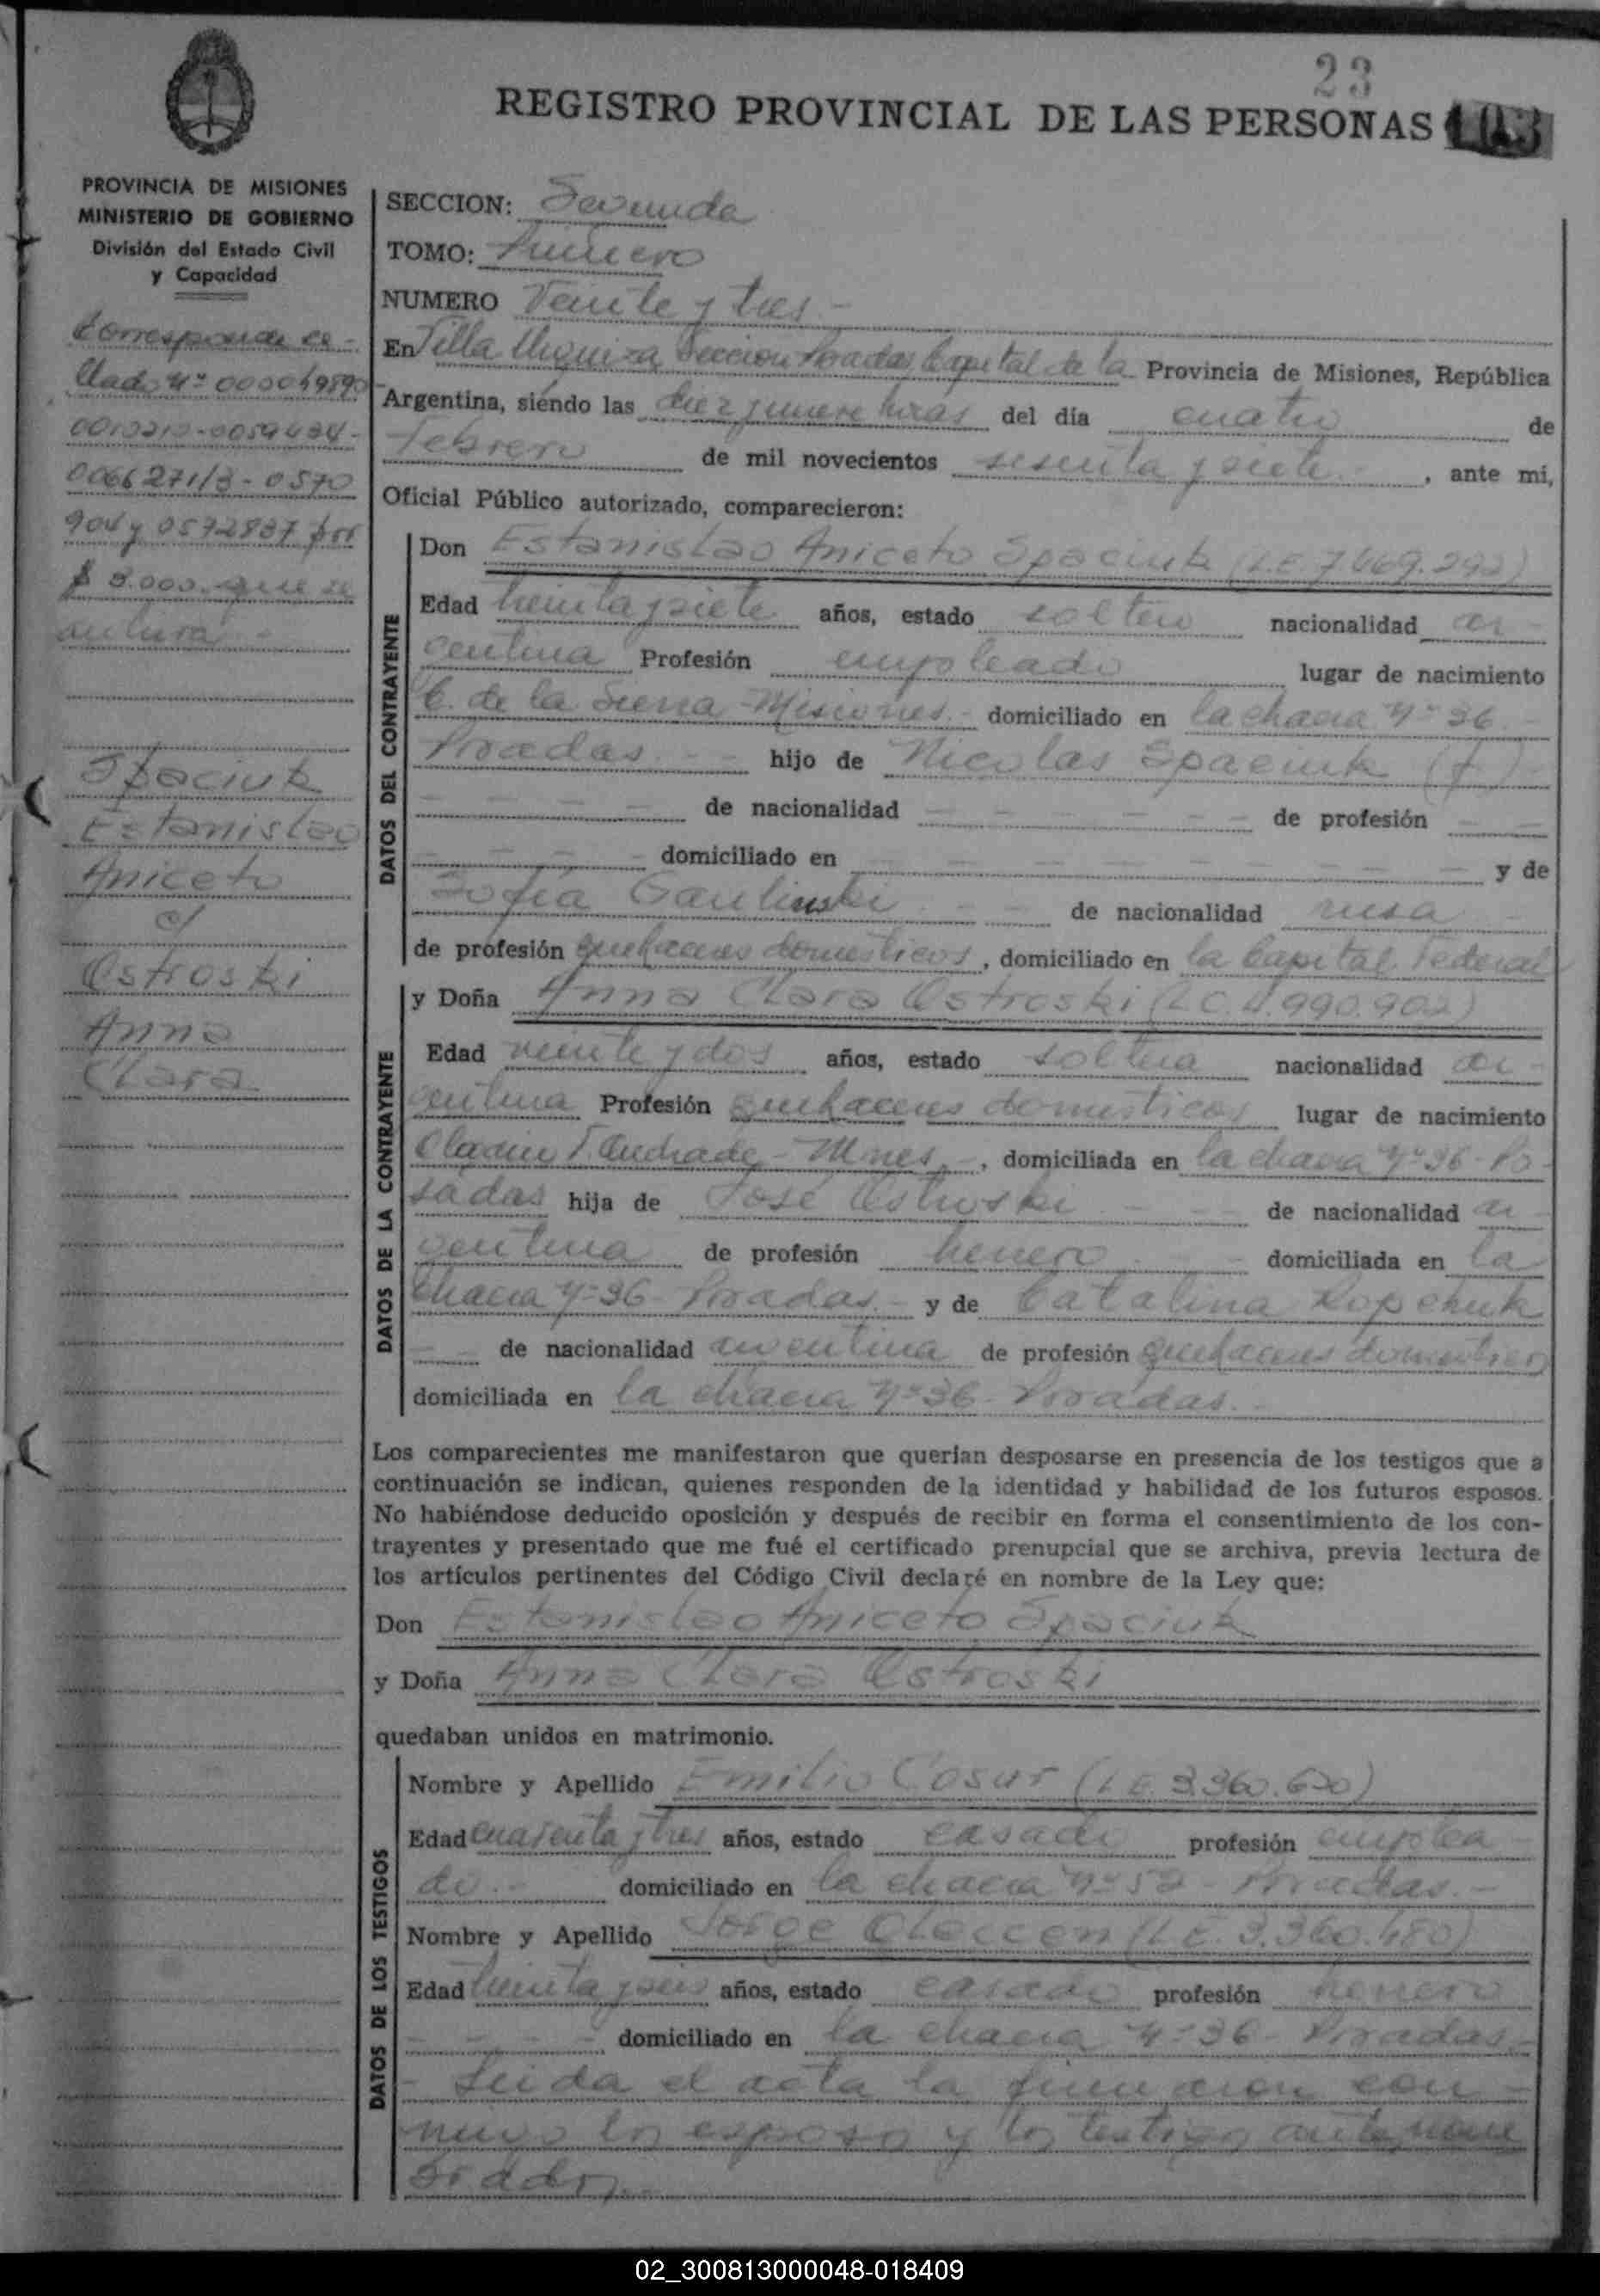 23
REGISTRO PROVINCIAL DE LAS PERSONAS 103
PROVINCIA DE MISIONES
MINISTERIO DE GOBIERNO
División del Estado Civil
y Capacidad
Corresponde es-
tado Nº
0066271/3 - 0570
904 y 0572837 por
$ 3.000. que se
Spaciuk
Estanislao
Aniceto
c/
Ostroski
Anna
Clara
SECCION: Segunda
TOMO: Primero
NUMERO Veinte y tres -
En Villa Urquiza Seccion Posadas, Capital de la Provincia de Misiones, República
Argentina, siendo las diez y nueve horas del día cuatro de
Febrero de mil novecientos sesenta y siete , ante mí,
Oficial Público autorizado, comparecieron:
DATOS DEL CONTRAYENTE
Don Estanislao Aniceto Spaciuk (L.E. 7.469.292)
Edad treinta y siete años, estado soltero nacionalidad ar-
gentina Profesión empleado lugar de nacimiento
C. de la Sierra - Misiones.- domiciliado en la chacra Nº 36
Posadas.- - hijo de Nicolas Spaciuk (f)
- - - - de nacionalidad - - - - - - de profesión - -
- - - - domiciliado en - - - - - - - - y de
Sofia Gaulinski - - de nacionalidad rusa
de profesión quehaceres domesticos , domiciliado en la Capital Federal
DATOS DE LA CONTRAYENTE
y Doña Anna Clara Ostroski (L.C. 4.990.902)
Edad veinte y dos años, estado soltera nacionalidad ar-
gentina Profesión quehaceres domesticos lugar de nacimiento
Olegario V. Andrade - Mnes.- , domiciliada en la chacra Nº 36 - Po-
sadas hija de José Ostroski - - de nacionalidad ar-
gentina de profesión herrero - domiciliada en la
chacra Nº 36 - Posadas.- y de Catalina Kopchuk
- - de nacionalidad argentina de profesión quehaceres domesticos
domiciliada en la chacra Nº 36 - Posadas.-
Los comparecientes me manifestaron que querían desposarse en presencia de los testigos que a
continuación se indican, quienes responden de la identidad y habilidad de los futuros esposos.
No habiéndose deducido oposición y después de recibir en forma el consentimiento de los con-
trayentes y presentado que me fué el certificado prenupcial que se archiva, previa lectura de
los artículos pertinentes del Código Civil declaré en nombre de la Ley que:
Don Estanislao Aniceto Spaciuk
y Doña Anna Clara Ostroski
quedaban unidos en matrimonio.
DATOS DE LOS TESTIGOS
Nombre y Apellido Emilio Cosur (L.E. 3.360.620)
Edad cuarenta y tres años, estado casado profesión emplea
do.- domiciliado en la chacra Nº 52 - Posadas.-
Nombre y Apellido Jorge (L.E. 3.360.480)
Edad treinta y seis años, estado casado profesión herrero
- - - - domiciliado en la chacra Nº 36 - Posadas.-
- Leida el acta la firmaron con-
migo los esposos y los testigos antemen
cionados.-
02_300813000048-018409